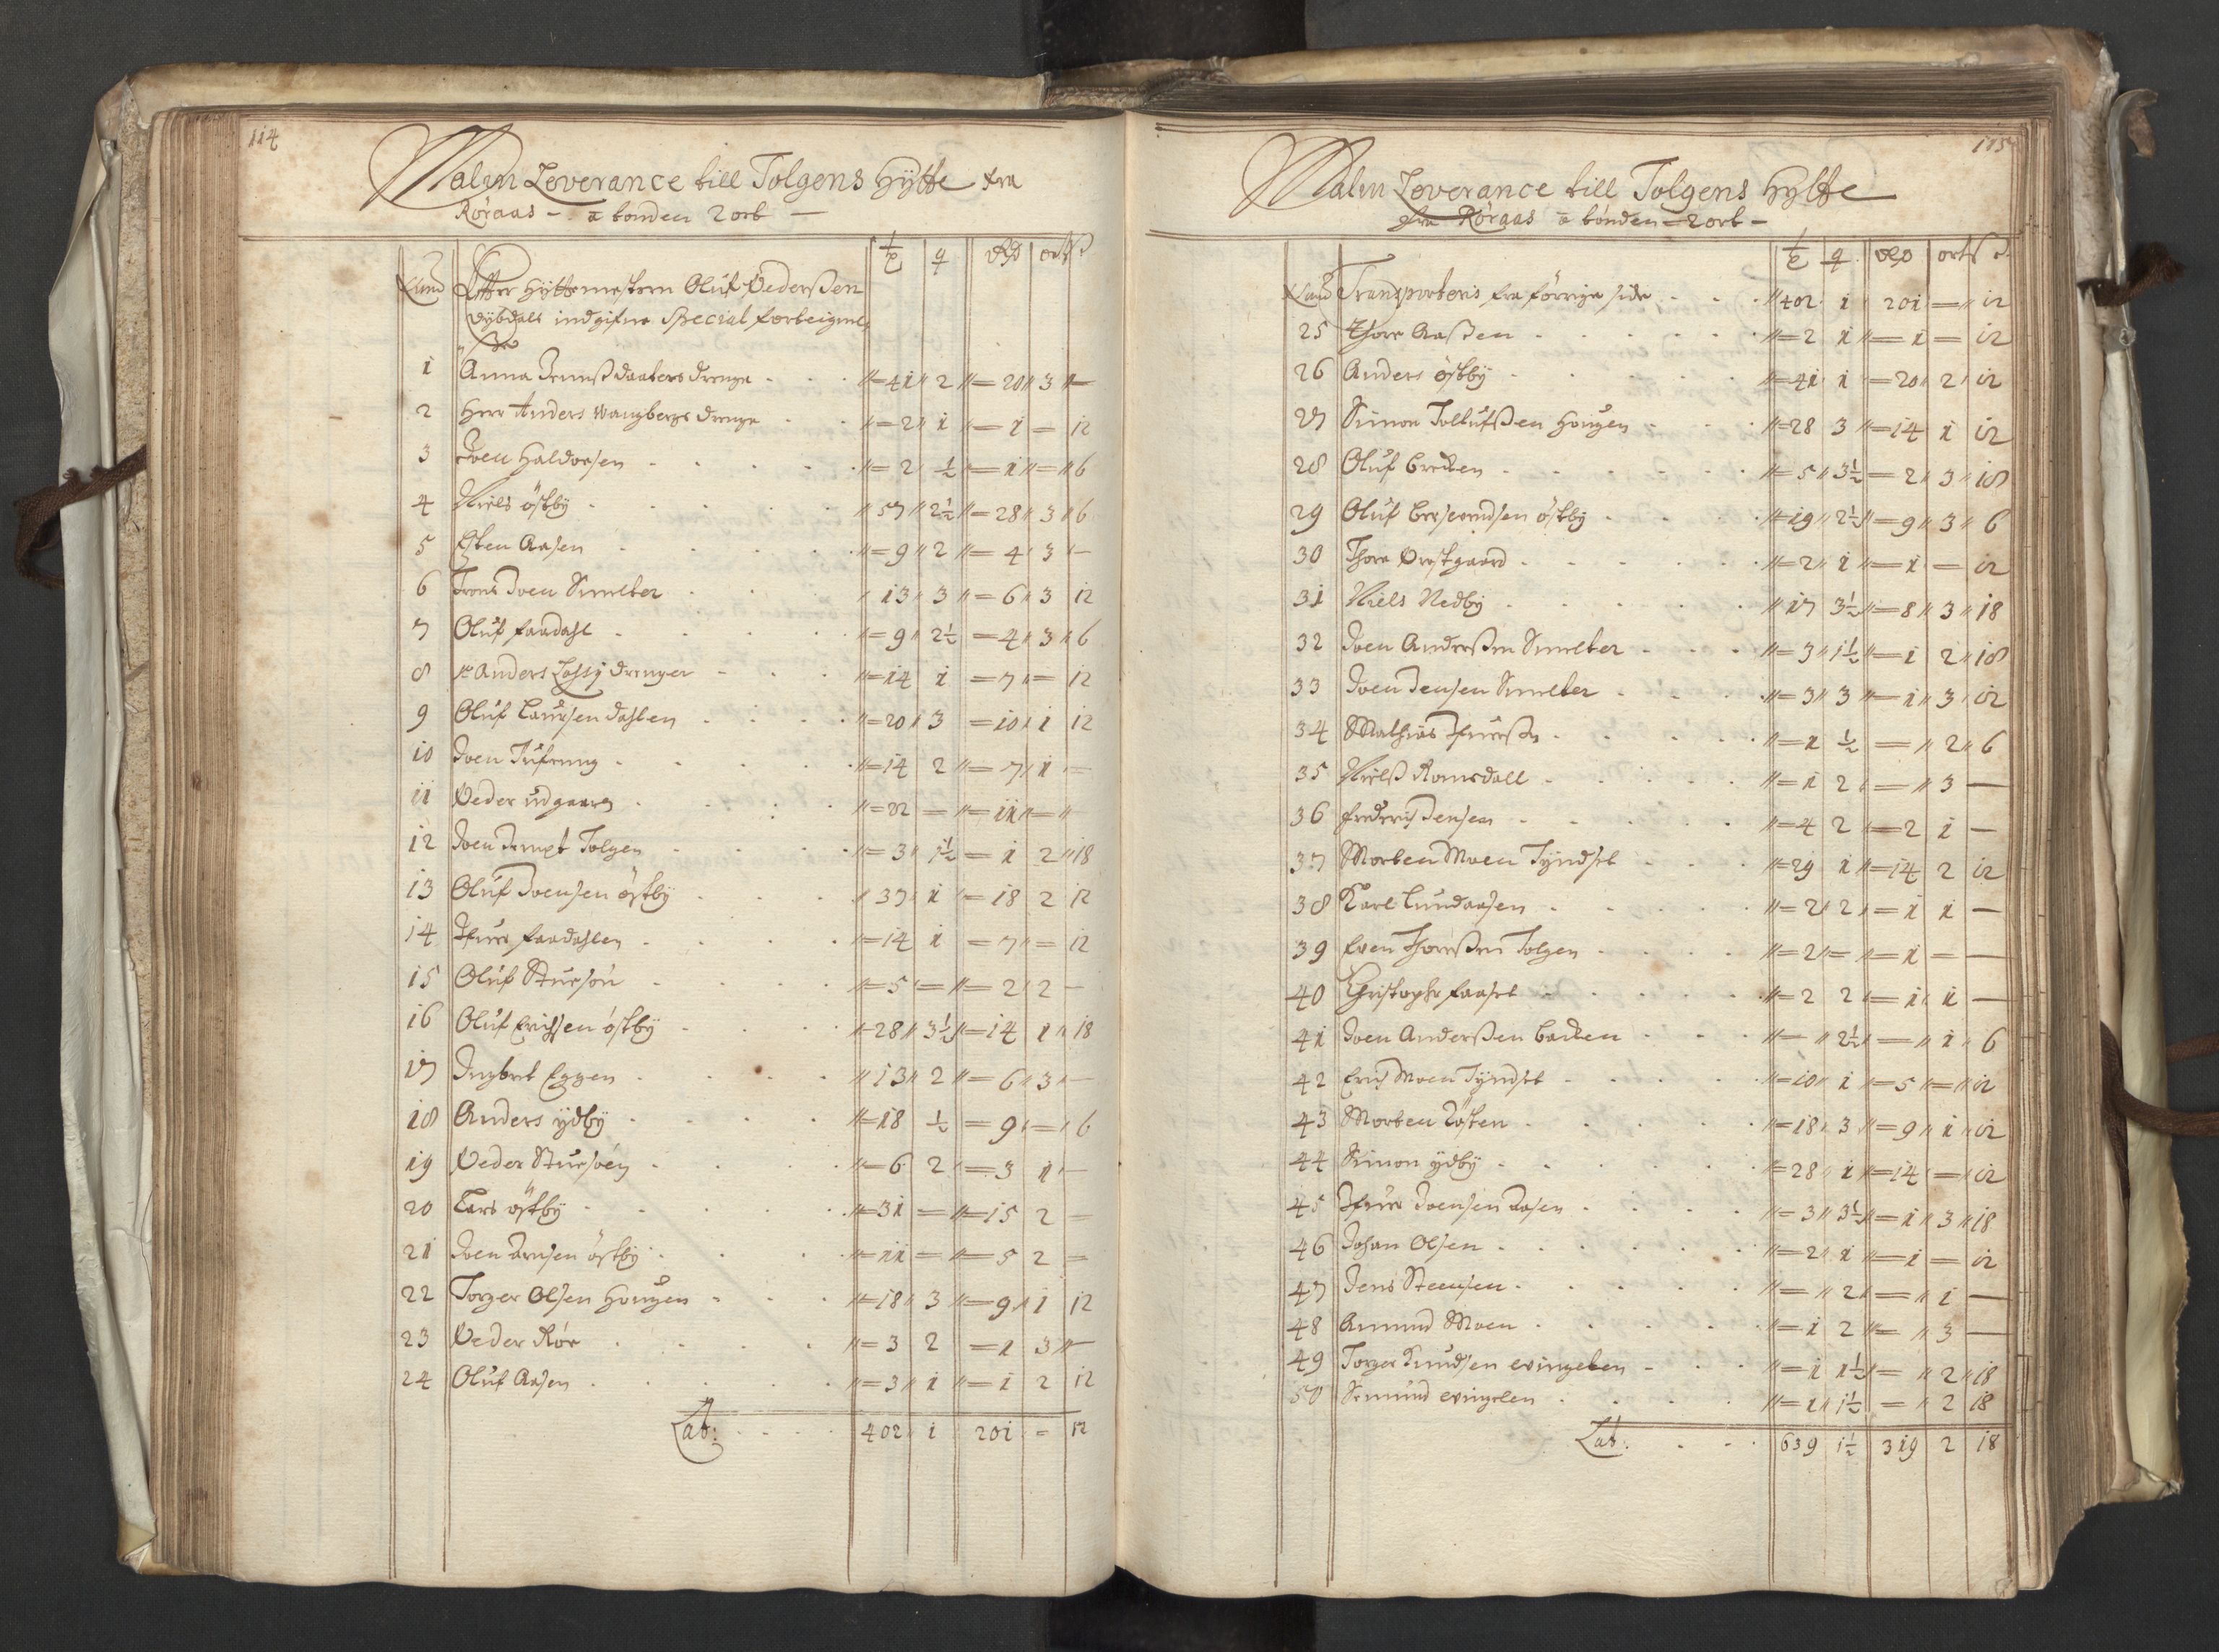 114
Malm Leverance till Tolgens Hÿtte fra
Röraas - a tonden 2 ort -
q ort ß
Efter Hÿttemestern Oluf Pederßen
Dÿbdals indgifne Special forteigne
1 Anna Jenußdaaters Drenge 41 2 20 3 -
2 Herr Anders Wangbergs Drenge 2 1 1 - 12
3 Joen Haldorsen 2 ½ 1 - 6
4 Niels östbÿ 57 2½ 28 3 6
5 Esten Aasen 9 2 4 3 -
6 Trons Joen Smelter 13 3 6 3 12
7 Oluf faadahl 9 2½ 4 3 6
8 Anders Lossj Drenger 14 1 7 - 12
9 Oluf Laursen Dahlen 20 3 10 1 12
10 Joen Tufreng 14 2 7 1 -
11 Peder udgaard 22 - 11 - -
12 Joen Tolgen 3 1½ 1 2 18
13 Oluf Joensen östbÿ 37 1 18 2 12
14 Ifuer faadahlen 14 1 7 - 12
15 Oluf Stuesön 5 - 2 2 -
16 Oluf Erichsen östbÿ 28 3½ 14 1 18
17 Ingbret Eggen 13 2 6 3 -
18 Anders ÿdbÿ 18 ½ 9 - 6
19 Peder Stuesöen 6 2 3 1 -
20 Lars östbÿ 31 - 15 2 -
21 Joen Arnsen östbÿ 11 - 5 2 -
22 Torger Olsen Hougen 18 3 9 1 12
23 Peder Röe 3 2 1 3 -
24 Oluf Aasen 3 1 1 2 12
Lat: 402 1 201 - 12
115
Malm Leverance till Tolgens Hÿtte
fra Röraas a tönden - 2 ort -
q ort ß
Transporteris fra förrige side 402 1 201 - 12
25 Thore Aaßen 2 1 1 - 12
26 Anders östbÿ 41 1 20 2 12
27 Simon Tollufßen Hougen 28 3 14 1 12
28 Oluf Brecken 5 3½ 2 3 18
29 Oluf Bersvendsen östbÿ 19 2½ 9 3 6
30 Thore Örstgaard 2 1 1 - 12
31 Niels Nedbÿ 17 3½ 8 3 18
32 Joen Anderßen Smelter 3 1½ 1 2 18
33 Joen Jensen Smelter 3 3 1 3 12
34 Mathias Ifuerßen 1 ½ - 2 6
35 Nielß Romsdall 1 2 - 3 -
36 frederich Jensen 4 2 2 1 -
37 Morten Moen Tÿndset 29 1 14 2 12
38 Karl Tundaasen 2 2 1 1 -
39 Even Thoreßen Tolgen 2 - 1 - -
40 Christopher faaset 2 2 1 1 -
41 Joen Anderßen Backen - 2½ - 1 6
42 Erich Moen Tÿndset 10 1 5 - 12
43 Morten Röften 18 3 9 1 12
44 Simon ÿdbÿ 28 1 14 - 12
45 Ifuer Joensen Aasen 3 3½ 1 3 18
46 Johan Olsen 2 1 1 - 12
47 Jens Steensen - 2 - 1 -
48 Amund Moen 1 2 - 3 -
49 Torger Knudsen Vingelen 1 1½ - 2 18
50 Semund Vingelen 1 1½ - 2 18
Lat: 639 1½ 319 2 18